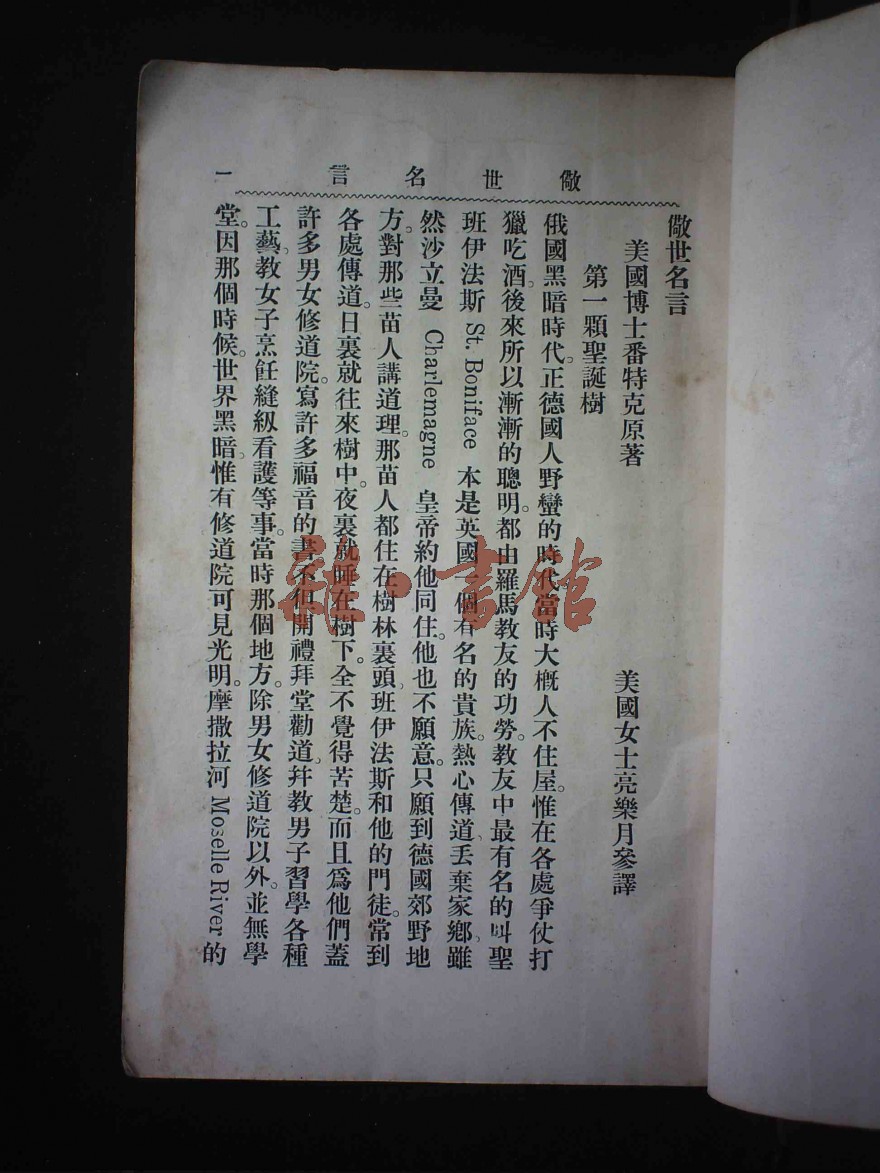 儆世名言
一
儆世名言
美國博士番特克原著
美國女士亮樂月參譯
第一顆聖誕樹
俄國黑暗時代。正德國人野蠻的時代當時大概人不住屋。惟在各處爭仗打
獵吃酒。後來所以漸漸的聰明。都由羅馬教友的功勞。教友中最有名的叫聖
班伊法斯 St. Boniface 本是英國一個有名的貴族。熱心傳道、丟棄家鄉、雖
然沙立曼 Charlemagne 皇帝約他同住。他也不願意。只願到德國郊野地
方。對那些苗人講道理。那苗人都住在樹林裏頭、班伊法斯和他的門徒。常到
各處傳道。日裏就往來樹中。夜裏就睡在樹下。全不覺得苦楚。而且爲他們蓋
許多男女修道院。寫許多福音的書不但開禮拜堂勸道、幷教男子習學各種
工藝、教女子烹飪縫級看護等事。當時那個地方。除男女修道院以外。並無學
堂。因那個時候。世界黑暗、惟有修道院可見光明。摩撒拉河 Moselle River 的
雜·書館